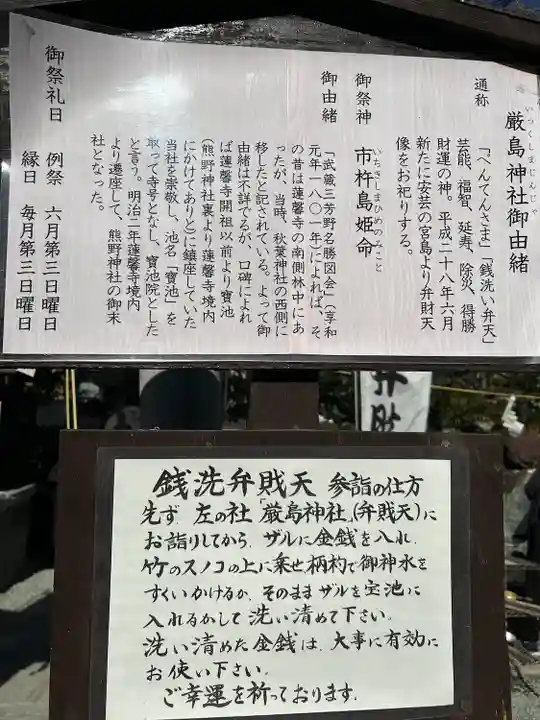 厳島神社御由緒
いつくしまじんじゃ
通称
「べんてんさま」「銭洗い弁天」
芸能、福智、延寿、除災、得勝
財運の神。平成二十八年六月
新たに安芸の宮島より弁財天
像をお祀りする。
御祭神
市杵島姫命
いちきしまひめのみこと
御由緒
「武蔵三芳野名勝図会」（享和
元年一八〇一年）によれば、そ
の昔は蓮馨寺の南側林中にあ
ったが、当時、秋葉神社の西側に
移したと記されている。よって御
由緒は不詳でるが、口碑によれ
ば蓮馨寺開祖以前より寶池
（熊野神社裏より蓮馨寺境内
にかけてありと）に鎮座していた
当社を崇敬し、池名「寶池」を
取って寺号となし、寶池院とした
と言う。明治二年蓮馨寺境内
より遷座して、熊野神社の御末
社となった。
御祭礼日
例祭 六月第三日曜日
縁日 毎月第三日曜日
弁財
銭洗弁財天 参詣の仕方
先ず、左の社「厳島神社」(弁財天)に
お詣りしてから、ザルに金銭を入れ、
竹のスノコの上に乗せ柄杓で御神水を
すくいかけるか、そのままザルを宝池に
入れるかして洗い清めて下さい。
洗い清めた金銭は、大事に有効に
お使い下さい。
ご幸運を祈っております。